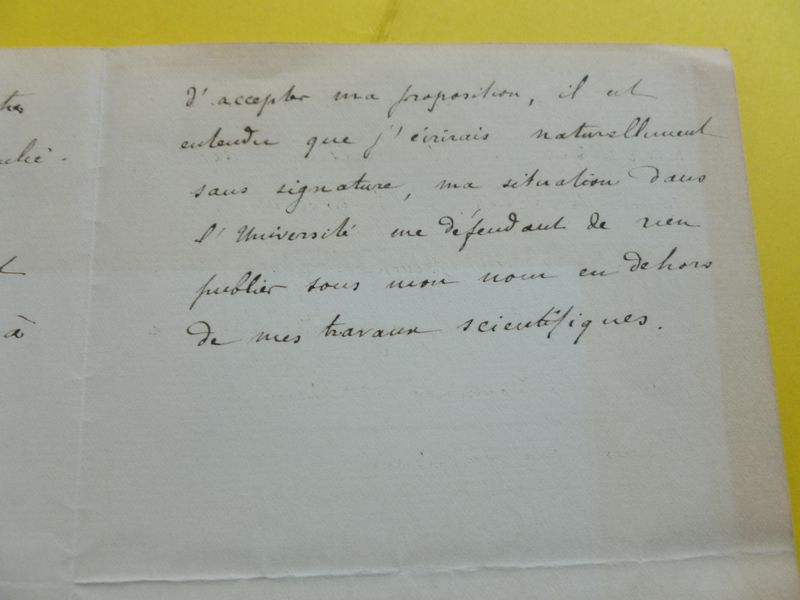 d'accepter ma proposition, il est
entendu que j'écrirais naturellement
sans signature, ma situation dans
l'Université me défendant de rien
publier sous mon nom en dehors
de mes travaux scientifiques.
à